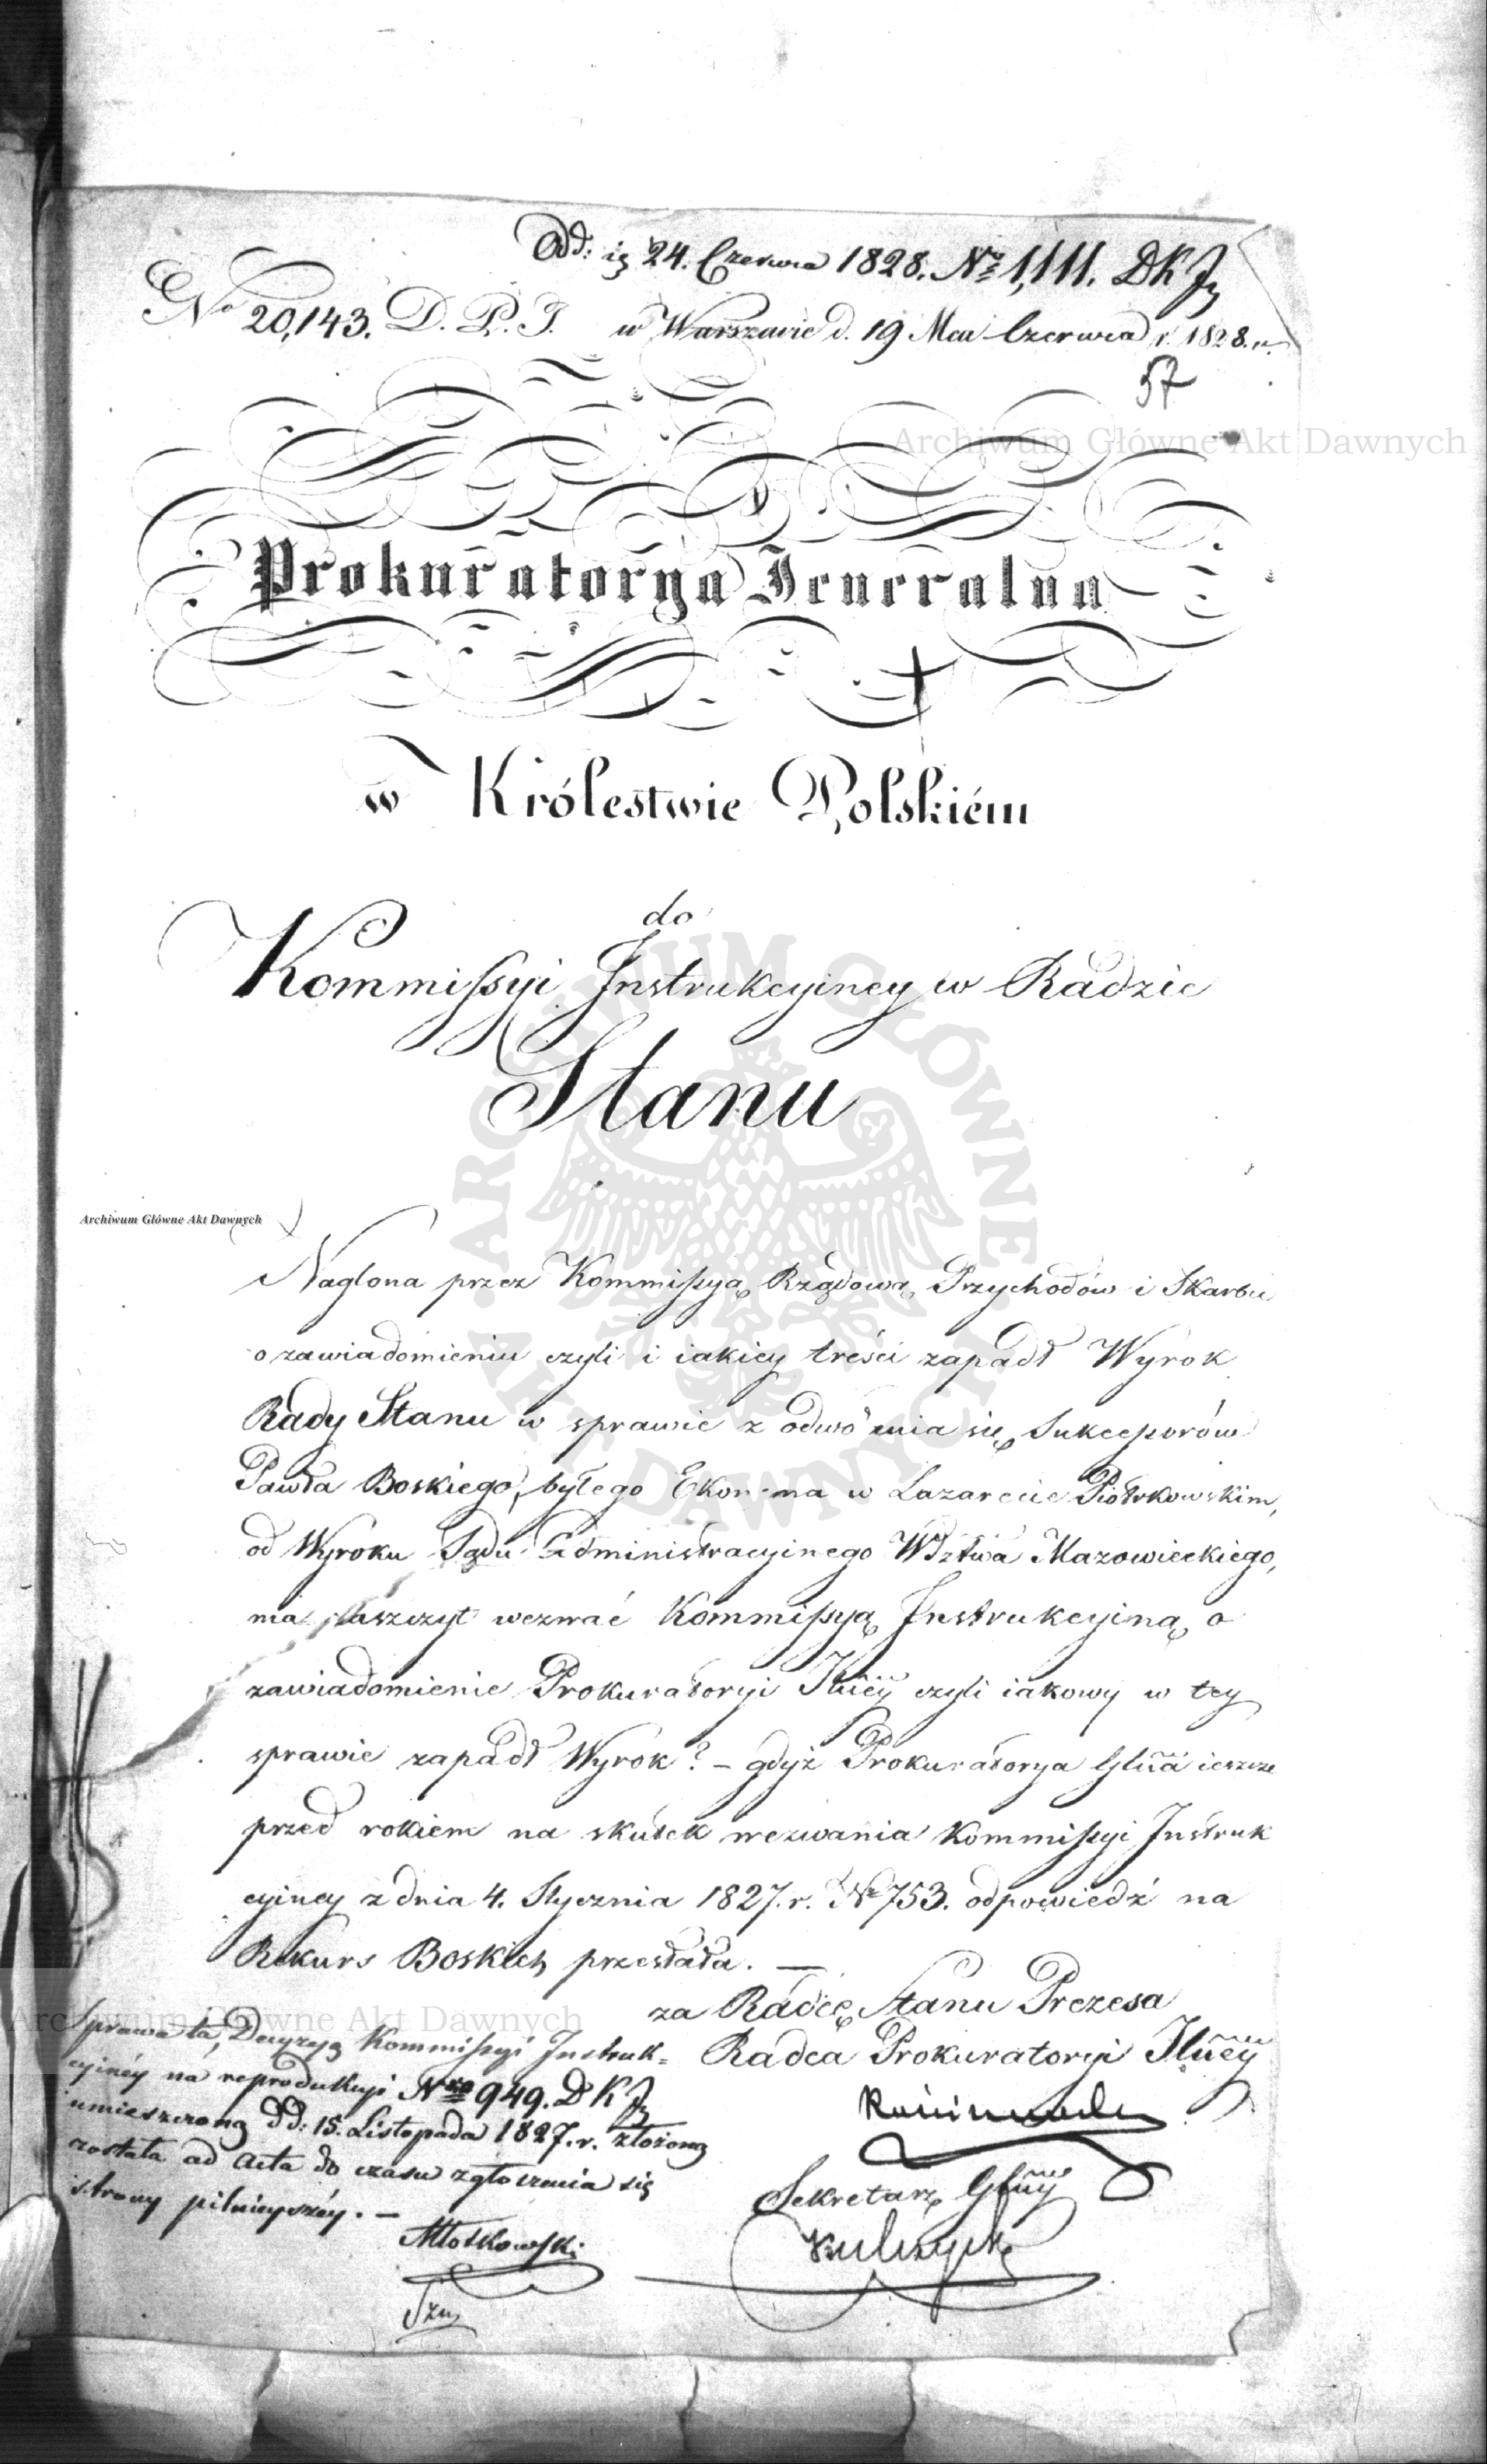 Odd: ię 24. Czerwca 1828. Nr 1,111. DKJ
No 20,143. D. P. J. w Warszawie d. 19 Mca Czerwca r. 1828. r.
57
Archiwum Główne Akt Dawnych
Prokuratorya Jeneralna
w Królestwie Polskiém
do
Kommissyi Instrukcyiney w Radzie
Stanu
ARCHIWUM GŁÓWNE AKT DAWNYCH
Archiwum Główne Akt Dawnych
Naglona przez Kommissyą Rządową Przychodów i Skarbu
o zawiadomieniu czyli i iakiey treści zapadł Wyrok
Rady Stanu w sprawie z odwołania się Sukcessorów
Pawła Boskiego, byłego Ekonoma w Lazarecie Piotrkowskim,
od Wyroku Sądu Administracyinego Wdztwa Mazowieckiego,
ma zaszczyt wezwać Kommissyą Instrukcyiną o
zawiadomienie Prokuratoryi Jlnéy czyli iakowy w tey
sprawie zapadł Wyrok? – gdyż Prokuratorya Glna ieszcze
przed rokiem na skutek wezwania Kommissyi Instruk
cyiney z dnia 4. Stycznia 1827. r. No 753. odpowiedź na
Rekurs Boskich przesłała. —
za Radcę Stanu Prezesa
Radca Prokuratoryi Jlnéy
Archiwum Główne Akt Dawnych
Sprawa ta, Decyzyą Kommissyi Instruk-
cyinéy na reprodukcyi Nro 949. DKJ
umieszczoną dd: 15. Listopada 1827. r. złożoną
została ad acta do czasu zgłoszenia się
strony pilnieyszéy. —
Sekretarz Glny
Młoskowski
Kulczycki